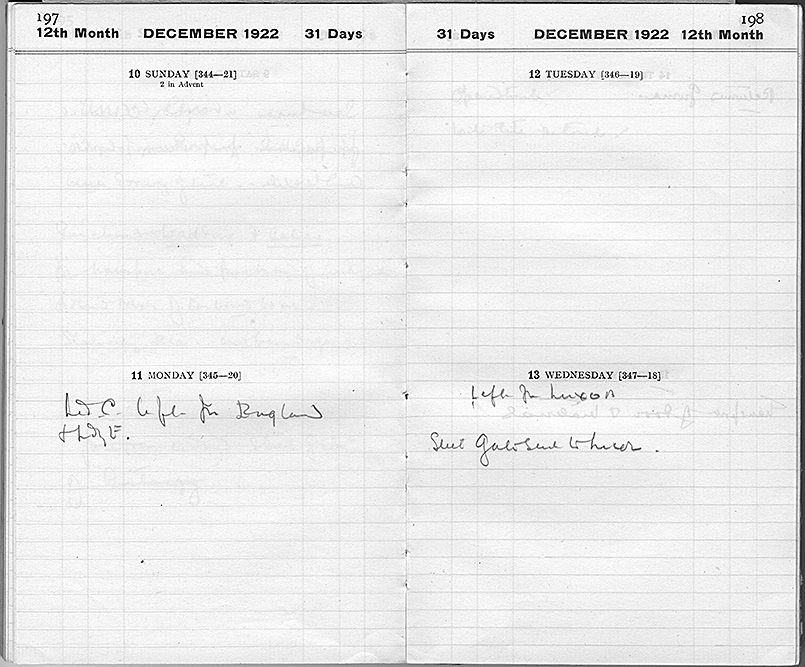 197
12th Month DECEMBER 1922 31 Days
10 SUNDAY [344—21]
2 in Advent
11 MONDAY [345—20]
Ld. C. left for England
& Lady E.
198
31 Days DECEMBER 1922 12th Month
12 TUESDAY [346—19]
13 WEDNESDAY [347—18]
Left for Luxor
Steel Gate sent to Luxor.